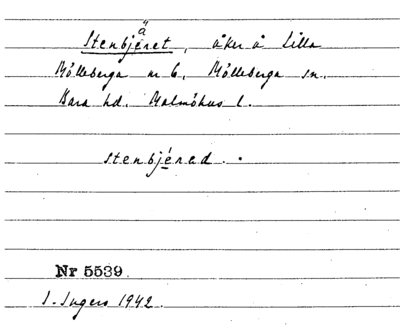 ä
Stenbjeret, åker å Lilla
Mölleberga nr 6. Mölleberga sn.
Bara hd. Malmöhus l.
stenbjérad.
Nr 5539
I. Ingers 1942.